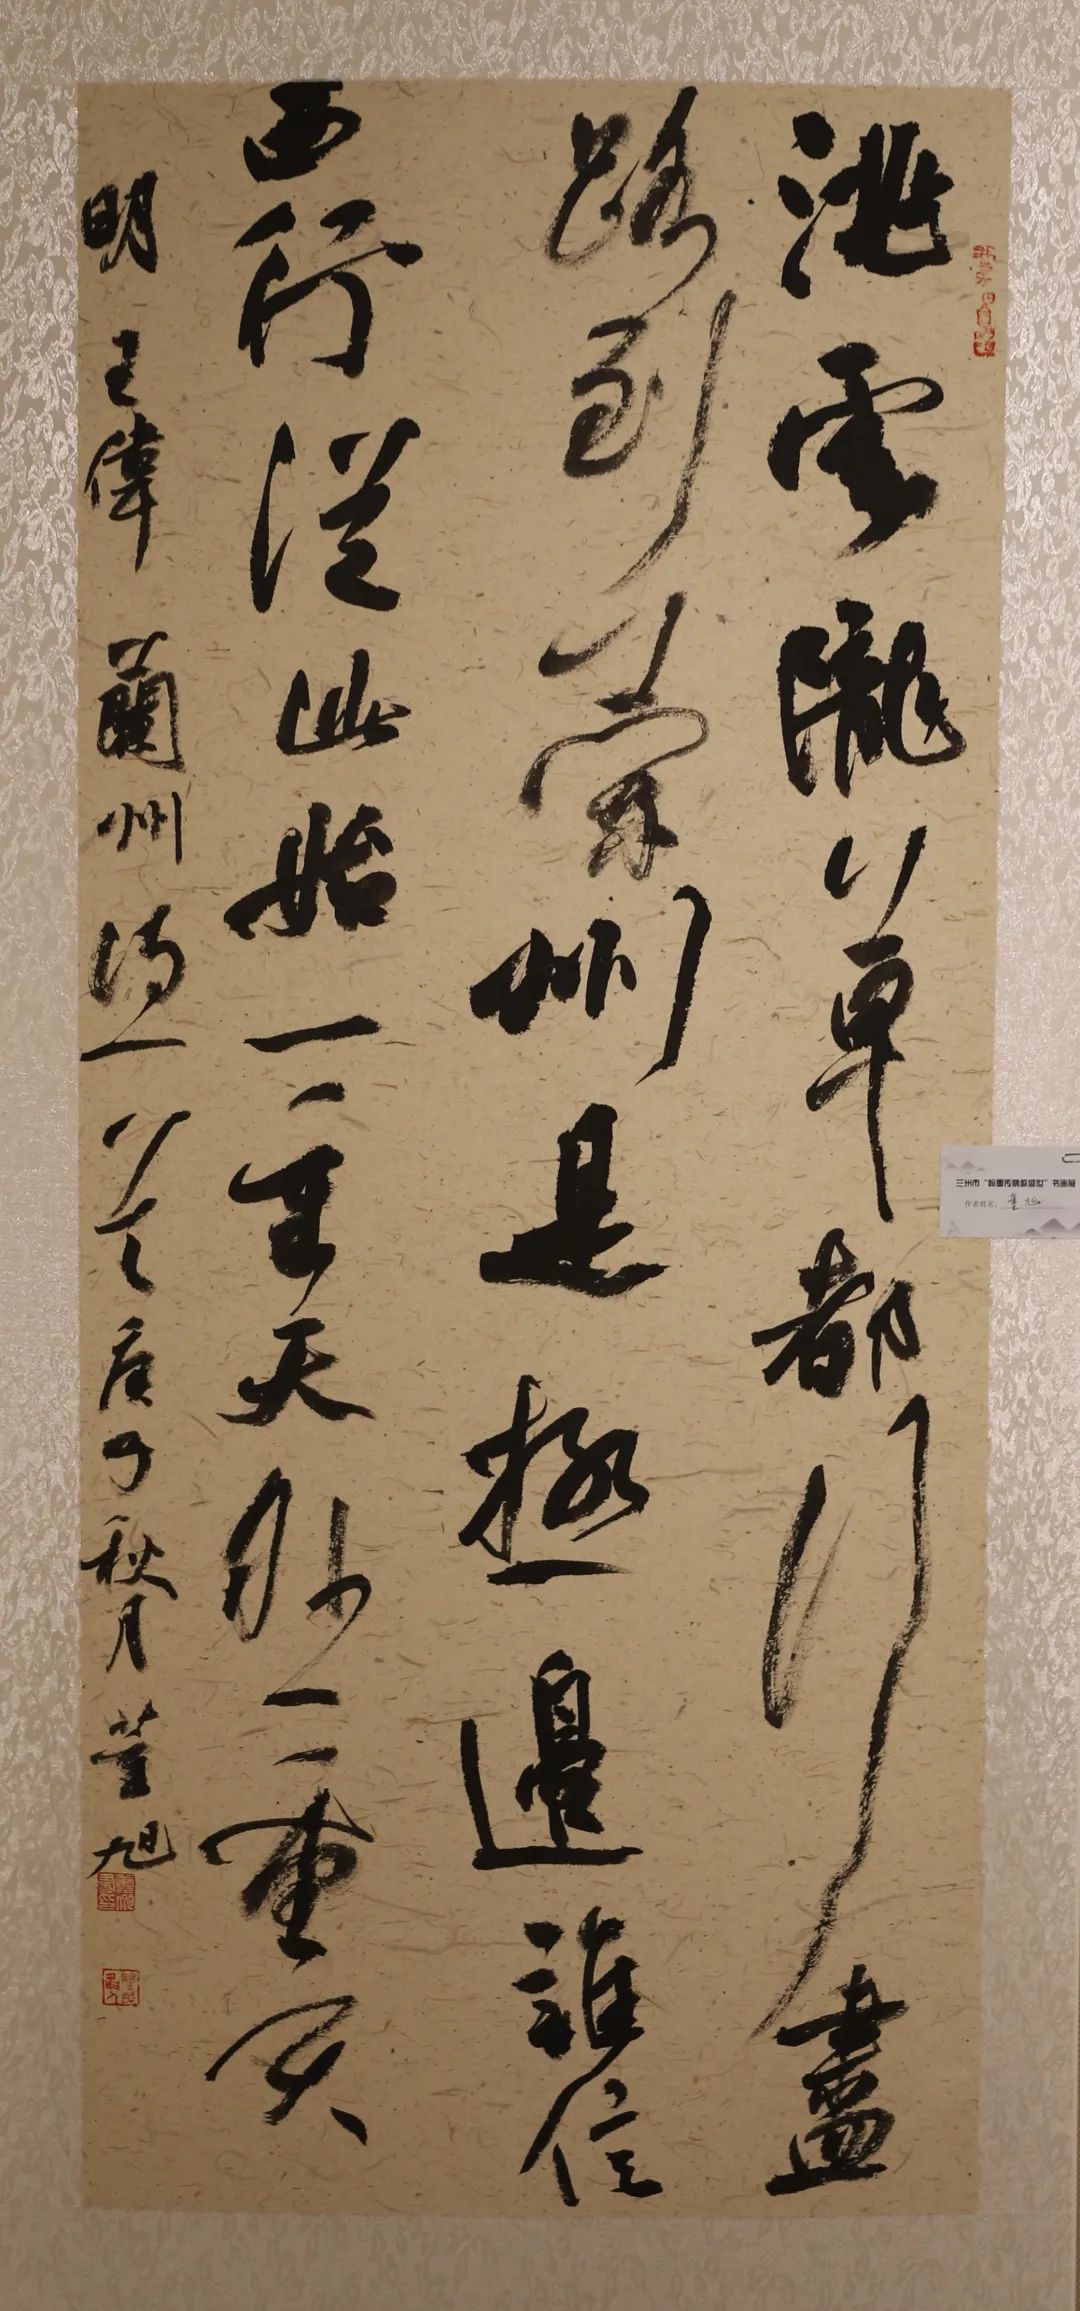 洮雲隴草都行盡
路到蘭州是極邊誰信
西行從此始一重天外一重天
明王偉蘭州詩一首庚子秋月董旭
兰州市“翰墨传情颂盛世”书画展
作者姓名：董旭